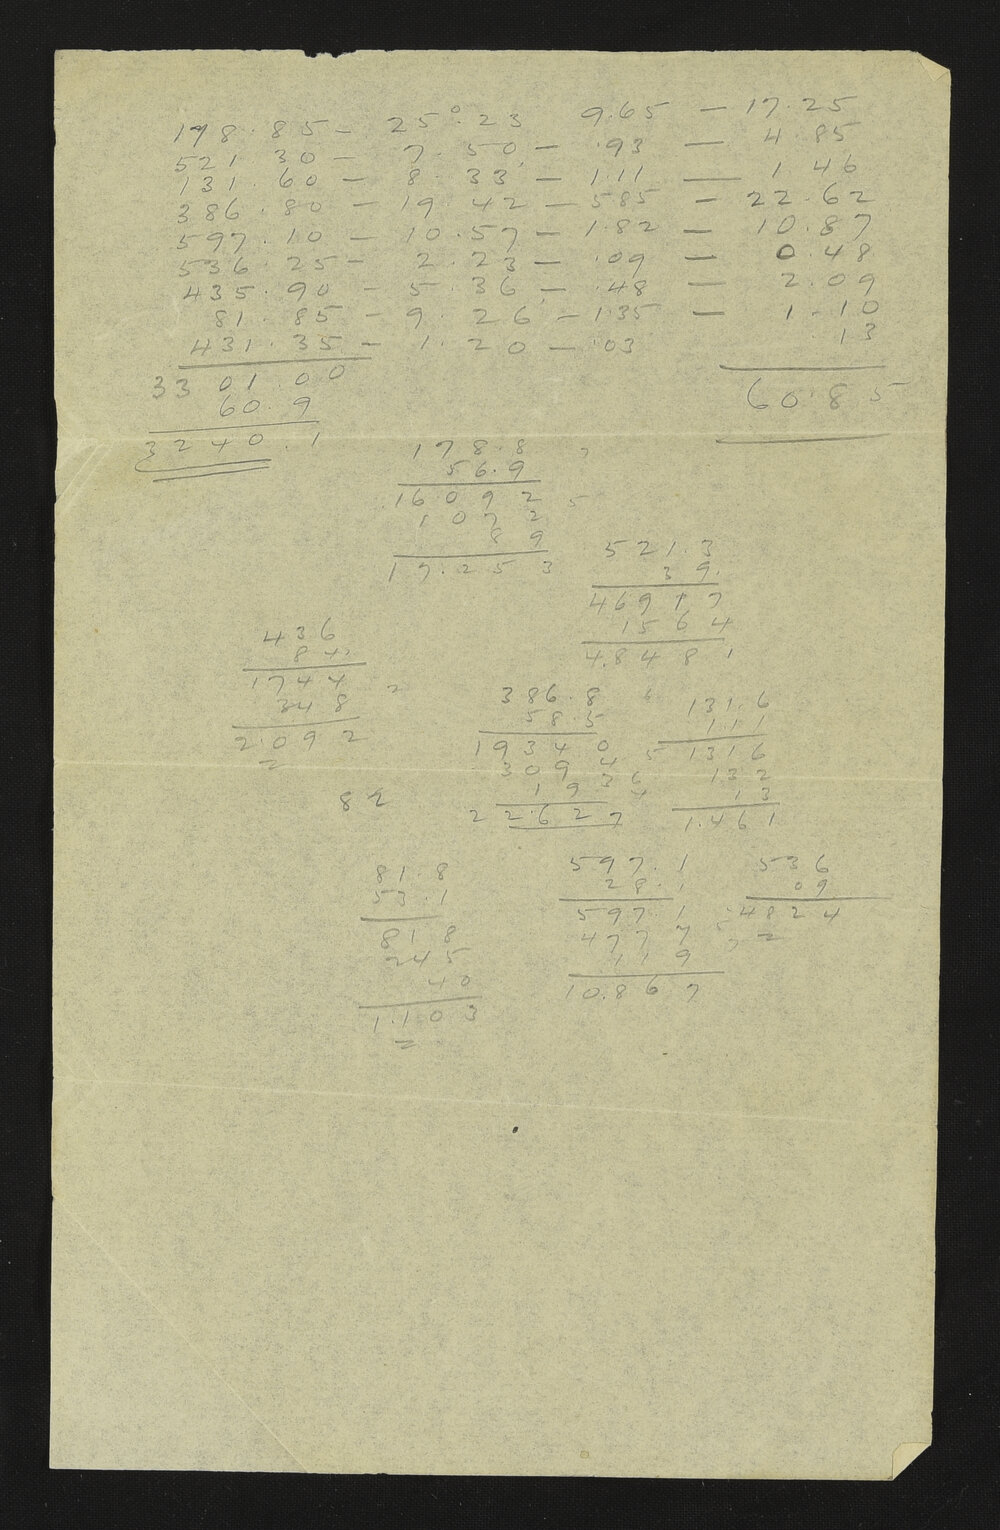 178.85 - 25°.23 9.65 - 17.25
521.30 - 7.50 - .93 - 4.85
131.60 - 8.33 - 1.11 - 1.46
386.80 - 19.42 - 585 - 22.62
597.10 - 10.57 - 1.82 - 10.87
536.25 - 2.23 - .09 - 0.48
435.90 - 5.36 - .48 - 2.09
81.85 - 9.26 - 1.35 - 1.10
431.35 - 1.20 - .03 13
3301.00 60.85
60.9
3240.1
178.8
56.9
16092
1072
89
17.253
521.3
39.
46917
1564
4.8481
436
84.
1744
348
2.092
386.8
58.5
19340
3094
19
22.627
131.6
111
1316
132
13
1.461
82
81.8
53.1
818
245
40
1.103
597.1
28.1
597.1
4777
119
10.867
536
09
4824